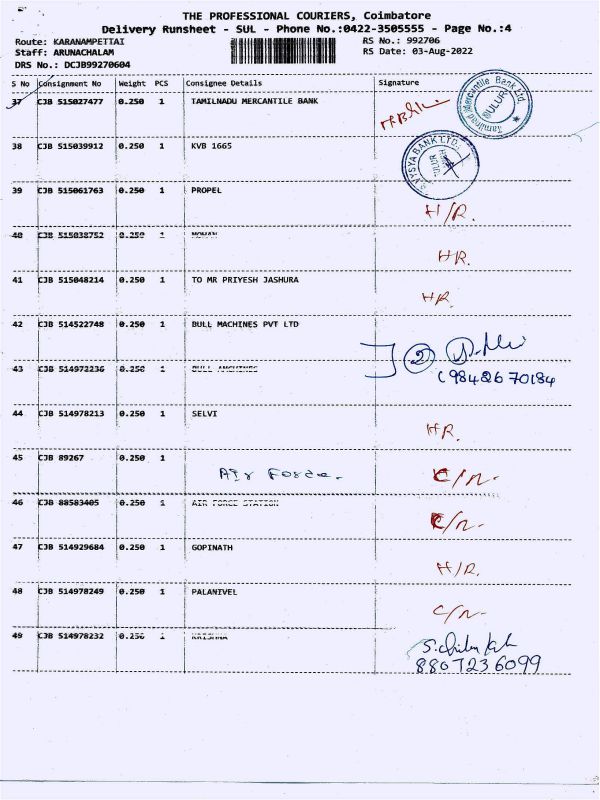 THE PROFESSIONAL COURIERS, Coimbatore
Delivery Runsheet - SUL - Phone No.:0422-3505555 - Page No.:4
Route: KARANAMPETTAI RS No.: 992706
Staff: ARUNACHALAM RS Date: 03-Aug-2022
DRS No.: DCJB99270604
S No Consignment No Weight PCS Consignee Details Signature
37 CJB 515027477 0.250 1 TAMILNADU MERCANTILE BANK Tamilnad Mercantile Bank Ltd. SULUR
38 CJB 515039912 0.250 1 KVB 1665 VYSYA BANK LTD.
39 CJB 515061763 0.250 1 PROPEL H/R.
40 CJB 515038752 0.250 1 MOHAN HR.
41 CJB 515048214 0.250 1 TO MR PRIYESH JASHURA HR.
42 CJB 514522748 0.250 1 BULL MACHINES PVT LTD 2
43 CJB 514972236 0.250 1 BULL AMCHINES (9842670184
44 CJB 514978213 0.250 1 SELVI HR.
45 CJB 89267 0.250 1 Air Force. C/N-
46 CJB 88583405 0.250 1 AIR FORCE STATION C/N-
47 CJB 514929684 0.250 1 GOPINATH H/R.
48 CJB 514978249 0.250 1 PALANIVEL C/N-
49 CJB 514978232 0.250 1 KRISHNA
8807236099